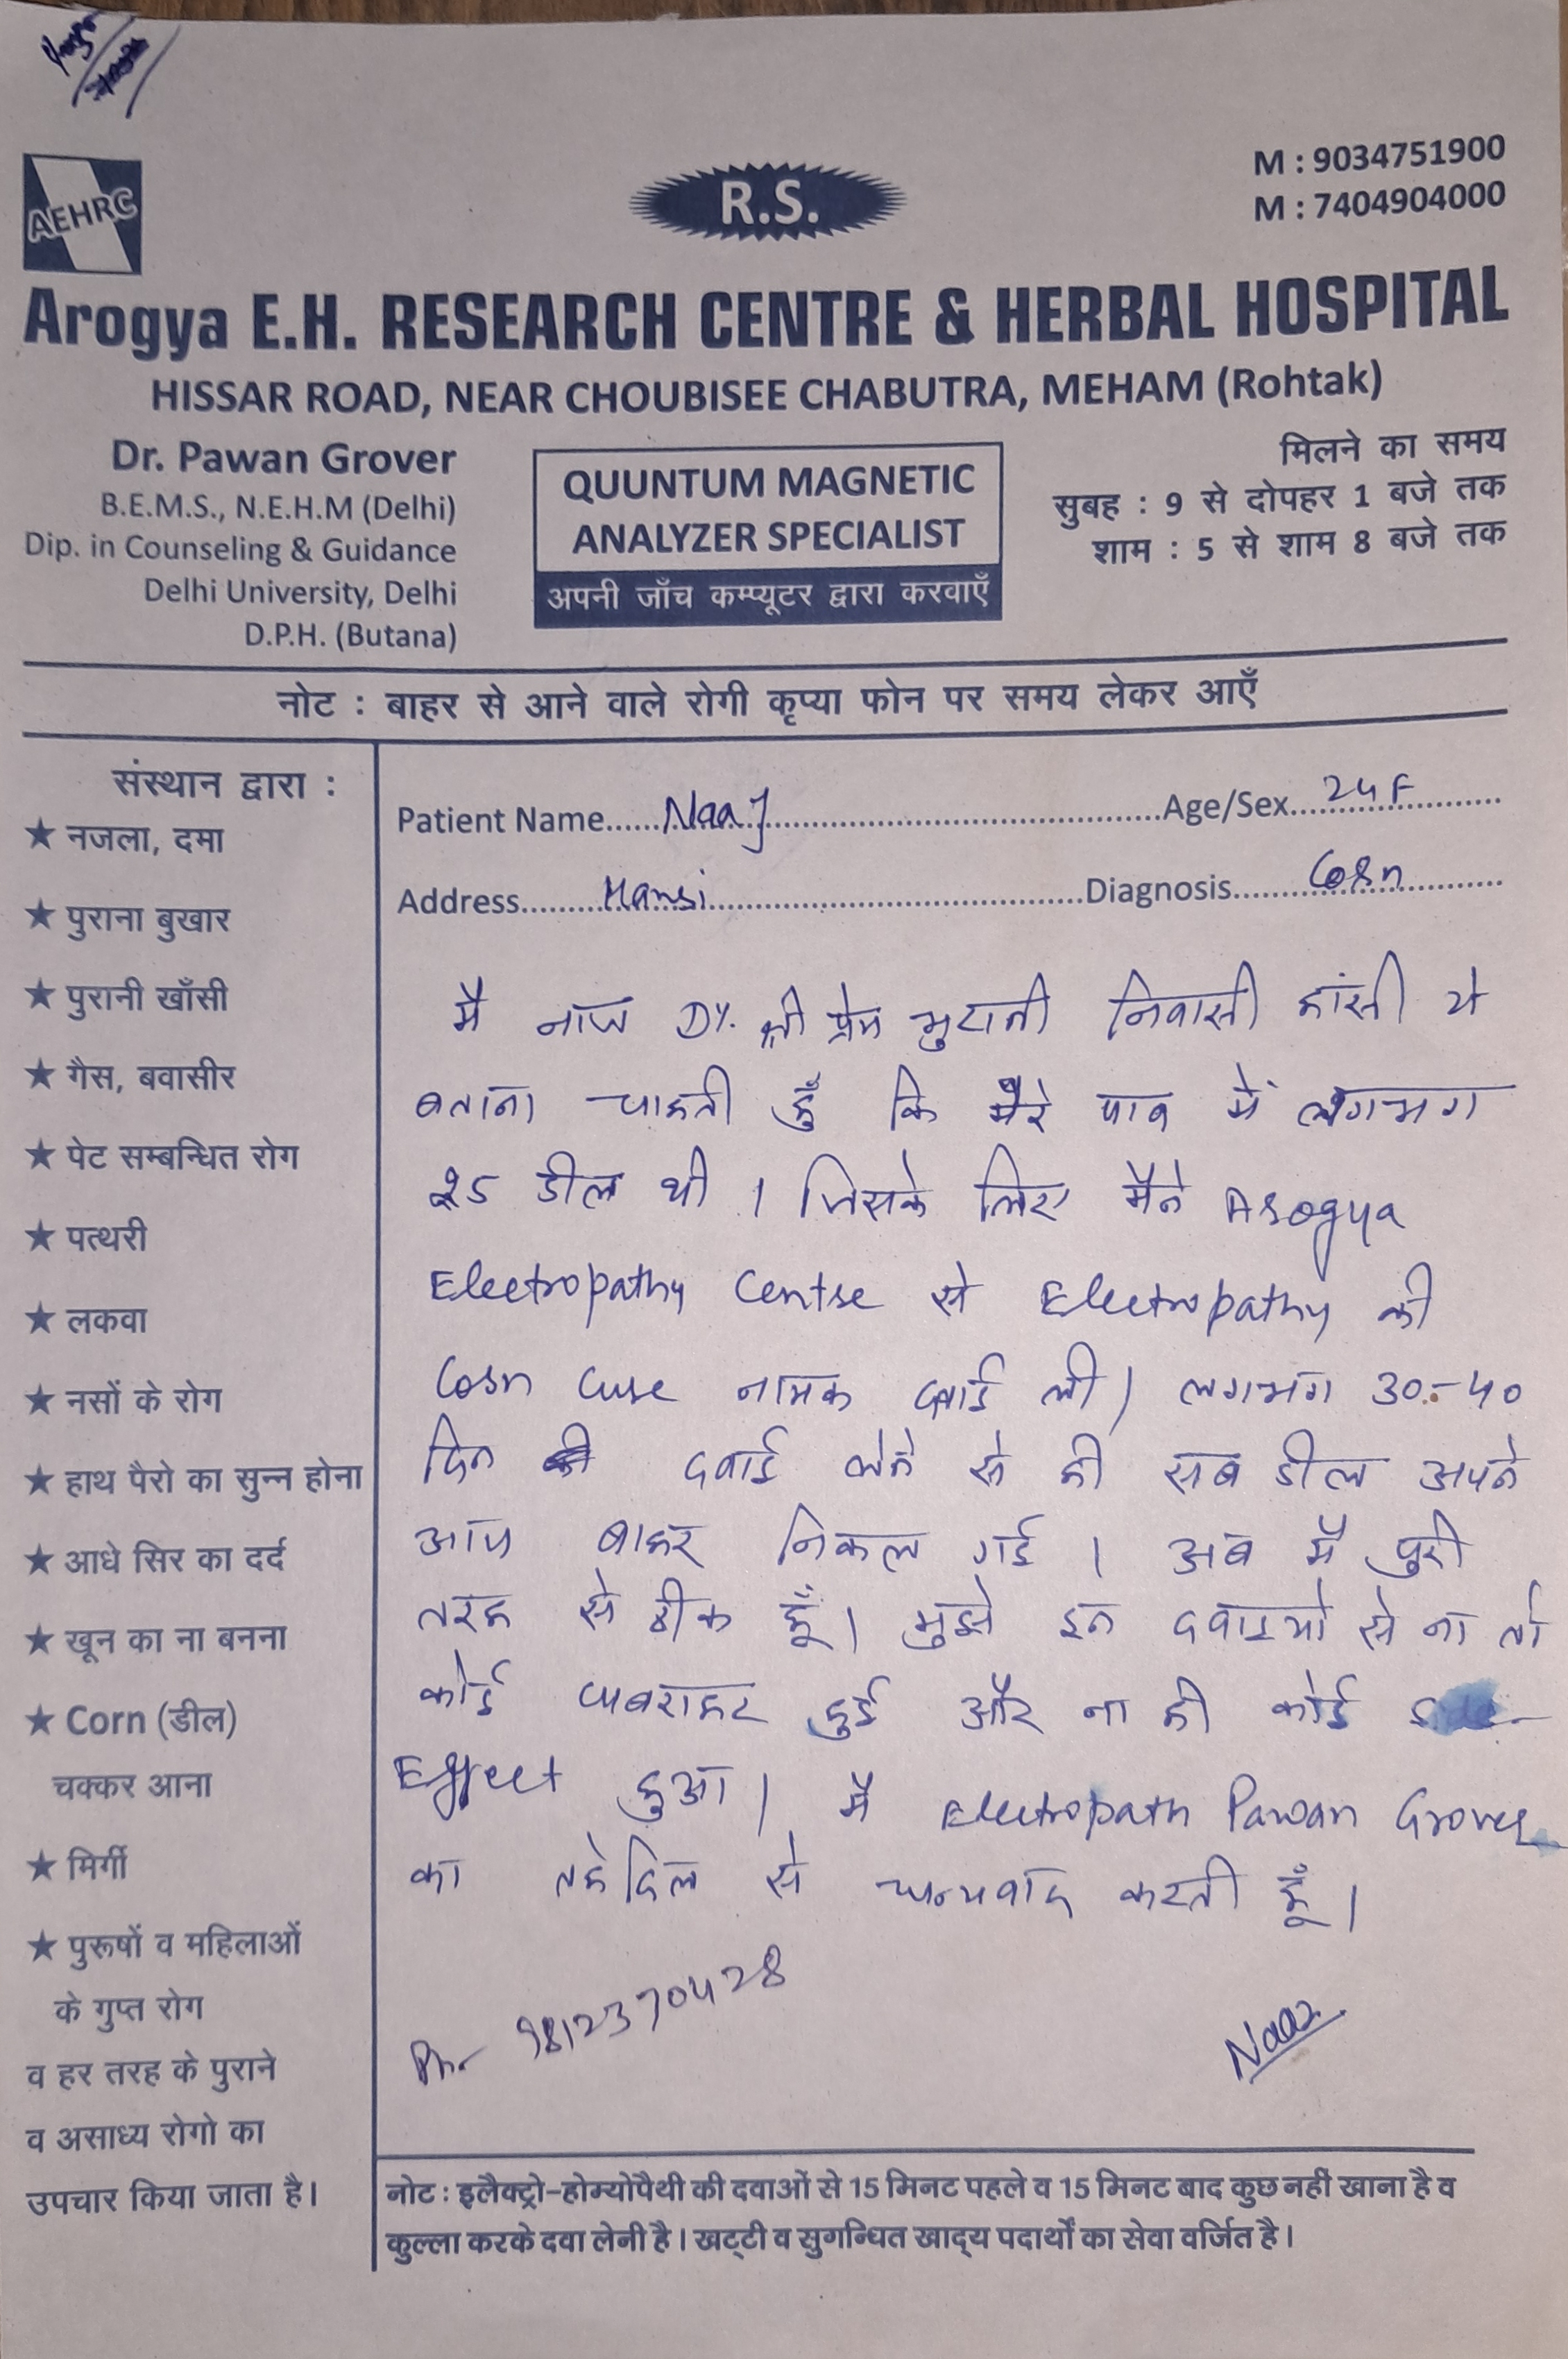 AEHRC
R.S.
M : 9034751900
M : 7404904000
Arogya E.H. RESEARCH CENTRE & HERBAL HOSPITAL
HISSAR ROAD, NEAR CHOUBISEE CHABUTRA, MEHAM (Rohtak)
Dr. Pawan Grover
B.E.M.S., N.E.H.M (Delhi)
Dip. in Counseling & Guidance
Delhi University, Delhi
D.P.H. (Butana)
QUUNTUM MAGNETIC
ANALYZER SPECIALIST
अपनी जाँच कम्प्यूटर द्वारा करवाएँ
मिलने का समय
सुबह : 9 से दोपहर 1 बजे तक
शाम : 5 से शाम 8 बजे तक
नोट : बाहर से आने वाले रोगी कृप्या फोन पर समय लेकर आएँ
संस्थान द्वारा :
★ नजला, दमा
★ पुराना बुखार
★ पुरानी खाँसी
★ गैस, बवासीर
★ पेट सम्बन्धित रोग
★ पत्थरी
★ लकवा
★ नसों के रोग
★ हाथ पैरो का सुन्न होना
★ आधे सिर का दर्द
★ खून का ना बनना
★ Corn (डील)
चक्कर आना
★ मिर्गी
★ पुरूषों व महिलाओं
के गुप्त रोग
व हर तरह के पुराने
व असाध्य रोगो का
उपचार किया जाता है।
Patient Name......Naaj......Age/Sex...24 F
Address......Hansi......Diagnosis......Corn
मै नाज D/. श्री प्रेम निवासी हांसी ये
बताना चाहती हुँ कि मेरे पाव में लगभग
25 डील थी । जिसके लिए मैने Arogya
Electropathy Centre से Electropathy की
Corn Cure नामक दवाई ली। लगभग 30-40
दिन दवाई लेने से ही सब डील अपने
आप बाहर निकल गई । अब मैं पुरी
तरह से ठीक हूँ। मुझे इन दवाइयो से ना तो
कोई घबराहट हुई और ना ही कोई
Effect हुआ। मै Electropath Pawan Grover
का तहेदिल से धन्यवाद करती हूँ।
Ph- 9812370428
Naaz
नोट : इलैक्ट्रो-होम्योपैथी की दवाओं से 15 मिनट पहले व 15 मिनट बाद कुछ नहीं खाना है व
कुल्ला करके दवा लेनी है। खट्टी व सुगन्धित खाद्य पदार्थों का सेवा वर्जित है।